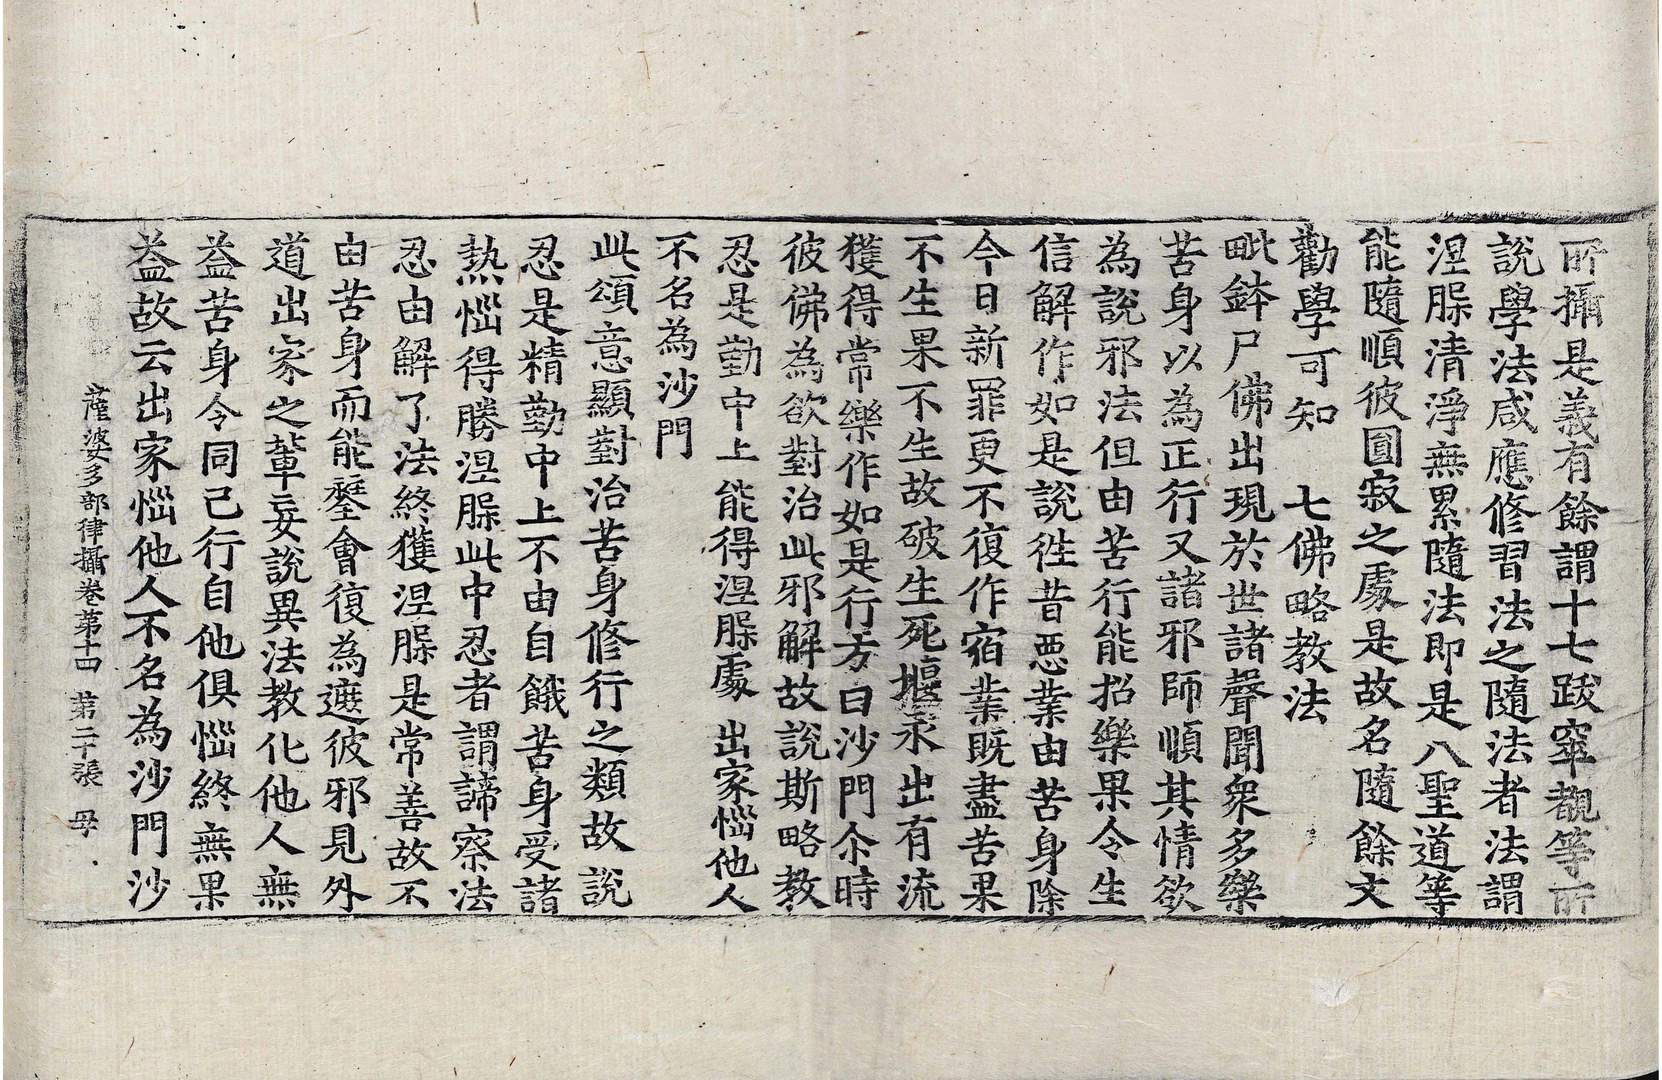 所攝是義有餘謂十七跋窣覩等所
說學法咸應修習法之隨法者法謂
涅槃清淨無累隨法即是八聖道等
能隨順彼圓寂之處是故名隨餘文
勸學可知　七佛略教法
毗鉢尸佛出現於世諸聲聞衆多樂
苦身以為正行又諸邪師順其情欲
為說邪法但由苦行能招樂果令生
信解作如是說往昔惡業由苦身除
今日新罪更不復作宿業既盡苦果
不生果不生故破生死堰永出有流
獲得常樂作如是行方曰沙門尒時
彼佛為欲對治此邪解故說斯略教
忍是勤中上能得涅槃處　出家惱他人
不名為沙門
此頌意顯對治苦身修行之類故說
忍是精勤中上不由自餓苦身受諸
熱惱得勝涅槃此中忍者謂諦察法
忍由解了法終獲涅槃是常善故不
由苦身而能壂會復為遮彼邪見外
道出家之輩妄說異法教化他人無
益苦身令同己行自他俱惱終無果
益故云出家惱他人不名為沙門沙
薩婆多部律攝卷第十四　第二十張　母